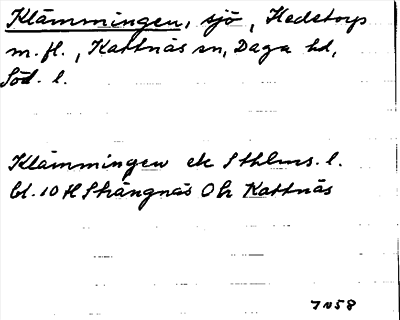 Klämmingen, sjö, Hedetorp
m.fl., Kattnäs sn, Daga hd,
Söd. l.
Klämmingen ek Sthlms. l.
bl. 10 H Strängnäs Oh Kattnäs
7 N 58